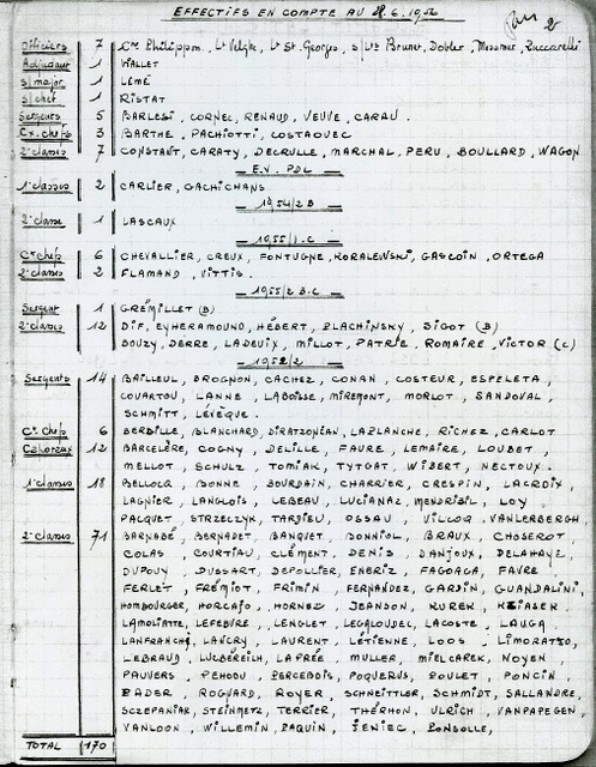 EFFECTIFS EN COMPTE AU 28.6.1956
2
Officiers 7 Cne Philippon, Lt Velghe, Lt St. Georges, s/Lts Brunet, Dobler, Messmer, Zuccarelli
Adjudant 1 VIALLET
S/major 1 LÉMÉ
S/chef 1 RISTAT
Sergents 5 BARLESI, CORNEC, RENAUD, VEUVE, CARAU.
Cx. chefs 3 BARTHE, PACHIOTTI, COSTAOUEC
2e classes 7 CONSTANT, CARATY, DECRULLE, MARCHAL, PERU, BOULLARD, WAGON
E.V. PDL
1e classes 2 CARLIER, GACHICHANS
1954/2 B
2e classe 1 LASCAUX
1955/1.C
Cx chefs 6 CHEVALLIER, CREUX, FONTUGNE, KORALEWSKI, GASCOIN, ORTEGA
2e classes 2 FLAMAND, VITTIS.
1955/2 B.C
Sergent 1 GRÉMILLET (B)
2e classes 12 DIF, EYHERAMOUND, HÉBERT, PLACHINSKY, SIGOT (B)
BOUZY, DERRE, LADEUIX, MILLOT, PATRIE, ROMAIRE, VICTOR (C)
1952/2
Sergents 14 BAILLEUL, BROGNON, CACHEZ, CONAN, COSTEUR, ESPELETA,
COUARTOU, LANNE, LABOISSE, MIREMONT, MORLOT, SANDOVAL,
SCHMITT, LÉVÈQUE.
Cx chefs 6 BERBILLE, BLANCHARD, DIRATZONÉAN, LAPLANCHE, RICHEZ, CARLOT
Caporaux 12 BARCELÈRE, COGNY, DELILLE, FAURE, LEMAIRE, LOUBET,
MELLOT, SCHULZ, TOMIAK, TYTGAT, WIBERT, NECTOUX.
1e classes 18 BELLOCQ, BONNE, BOURDAIN, CHARRIER, CRESPIN, LACROIX,
LAGNIER, LANGLOIS, LEBEAU, LUCIANAZ, MENDRIBIL, LOY
PACQUET, STRZELCZYK, TARDIEU, OSSAU, VILCOQ, VANLERBERGH,
2e classes 71 BARNABÉ, BERNADET, BANQUET, BONNIOL, BRAUX, CHOSEROT
COLAS, COURTIAU, CLÉMENT, DENIS, DANJOUX, DELAHAYE,
DUPOUY, DUSSART, DEPOLLIER, ENERIZ, FAGOAGA, FAVRE,
FERLET, FRÉMIOT, FRIMIN, FERNANDEZ, GARDIN, GUANDALINI,
HOMBOURGER, HORCAJO, HORNEZ, JEANSON, KUREK, KSIASEK,
LAMOLIATTE, LEFEBVRE, LENGLET, LEGALOUDEC, LACOSTE, LAUGA,
LANFRANCHI, LANCRY, LAURENT, LÉTIENNE, LOOS, LIMORATTO,
LEBRAUD, LUCBÉREILH, LAPRÉE, MULLER, MIELCAREK, NOYEN,
PAUVERS, PEHOOU, PERCEBOIS, POQUERUS, POULET, PONCIN,
RADER, ROGNARD, ROYER, SCHNEITTLER, SCHMIDT, SALLANDRE,
SCZEPANIAK, STEINMETZ, TERRIER, THÉRHON, ULRICH, VANPAPEGEN,
VANLOON, WILLEMIN, PAQUIN, JENIEC, PONSOLLE,
TOTAL 170